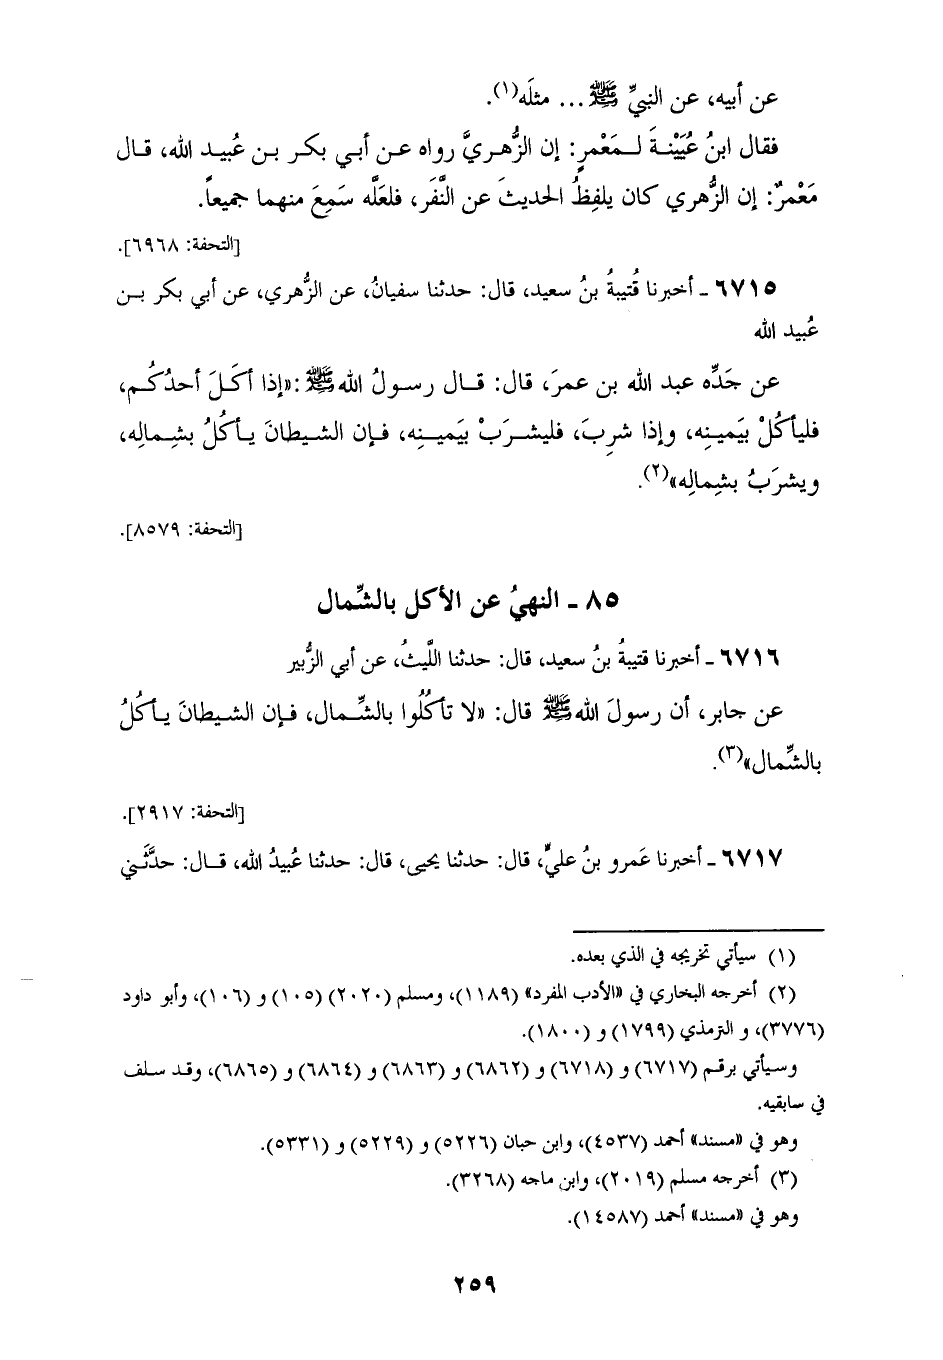 عن أبيه، عن النبيِّ ﷺ ... مثلَه(١).
فقال ابنُ عُيَيْنةَ لـمَعْمرٍ: إن الزُّهـريَّ رواه عـن أبـي بكـر بـن عُبيـد الله، قـال
مَعْمرٌ: إن الزُّهري كان يلفِظُ الحديثَ عن النَّفَر، فلعَلَّه سَمِعَ منهما جميعاً.
[التحفة: ٦٩٦٨].
٦٧١٥ ـ أخبرنا قُتيبةُ بنُ سعيد، قال: حدثنا سفيانُ، عن الزهري، عن أبي بكر بـن
عُبيد الله
عن جَدِّه عبد الله بن عمرَ، قال: قـال رسولُ اللهِ ﷺ: «إذا أكَـلَ أحدُكُـم،
فليأكُلْ بيَمينِه، وإذا شرِبَ، فليشـرَبْ بيَمينِه، فـإن الشـيطانَ يـأكُلُ بشِـمالِه،
ويشرَبُ بشِمالِه»(٢).
[التحفة: ٨٥٧٩].
٨٥ ـ النهيُ عن الأكل بالشِّمال
٦٧١٦ ـ أخبرنا قتيبةُ بنُ سعيد، قال: حدثنا اللَّيثُ، عن أبي الزُّبير
عن جابر، أن رسولَ اللهِ ﷺ قال: «لا تأكُلُوا بالشِّـمال، فـإن الشـيطانَ يـأكلُ
بالشِّمال»(٣).
[التحفة: ٢٩١٧].
٦٧١٧ ـ أخبرنا عَمرو بنُ عليٍّ، قال: حدثنا يحيى، قال: حدثنا عُبيدُ الله، قـال: حدَّثَـني
(١) سيأتي تخريجه في الذي بعده.
(٢) أخرجه البخاري في «الأدب المفرد» (١١٨٩)، ومسلم (٢٠٢٠) (١٠٥) و (١٠٦)، وأبو داود
(٣٧٧٦)، و الترمذي (١٧٩٩) و (١٨٠٠).
وسيأتي برقم (٦٧١٧) و (٦٧١٨) و (٦٨٦٢) و (٦٨٦٣) و (٦٨٦٤) و (٦٨٦٥)، وقـد سـلف
في سابقيه.
وهو في «مسند» أحمد (٤٥٣٧)، وابن حبان (٥٢٢٦) و (٥٢٢٩) و (٥٣٣١).
(٣) أخرجه مسلم (٢٠١٩)، وابن ماجه (٣٢٦٨).
وهو في «مسند» أحمد (١٤٥٨٧).
٢٥٩